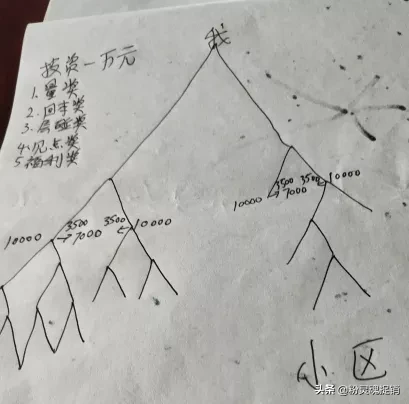 我
投资一万元
1. 量奖
2. 回本奖
3. 层碰奖
4. 见点奖
5 福利奖
10000 3500 → 7000 3500 ← 10000
10000 3500 → 7000 3500 ← 10000
小区
头条 @粉灵魂促销